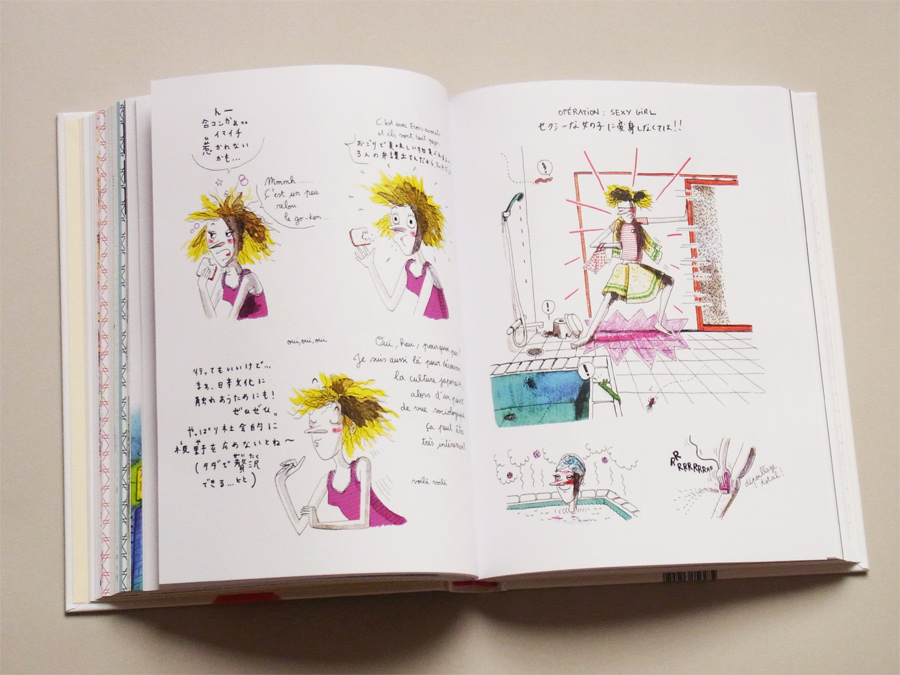 んー
合コンかぁ。。
イマイチ
惹かれない
かも…
Mmmh...
C'est un peu
relou
le go-kon...
C'est avec trois avocats
et ils vont tout payer
おごりで美味しい物
3人の弁護士さん
oui, oui, oui
行ってもいいけど…
まぁ、日本文化に
触れあうためにも!
ぜひぜひ。
やっぱり社会的に
視野を広めないとね〜
(タダで贅沢
ぜいたく
できる…ヒヒ)
Oui, heu, pourquoi pas!
Je suis aussi là pour découvrir
la culture japonaise,
alors d'un point
de vue sociologique
ça peut être
très intéressant
voilà voilà
OPÉRATION : SEXY GIRL
セクシーな女の子に変身しなくては!!
!
!
!
RRRRRRRRR
épilage
total